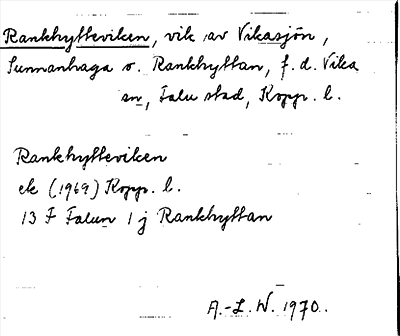 Rankhytteviken, vik av Vikasjön,
Sunnanhaga o. Rankhyttan, f. d. Vika
sn, Falu stad, Kopp. l.
Rankhytteviken
ek (1969) Kopp. l.
13 F Falun 1 j Rankhyttan
A.-L. W. 1970.